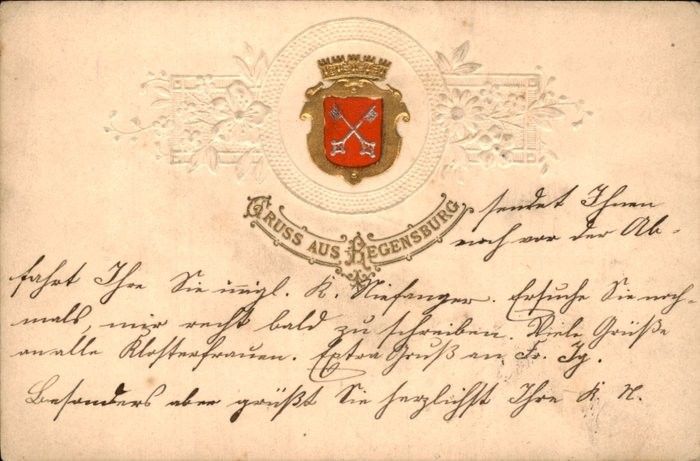 GRUSS AUS REGENSBURG
sendet Ihnen
noch vor der Ab-
fahrt Ihre Sie innigl. K. Niefanger. Ersuche Sie noch
mals, mir recht bald zu schreiben. Viele Grüße
an alle Klosterfrauen. Extra Gruß an Fr. Ig.
Besonders aber grüßt Sie herzlichst Ihre K. N.